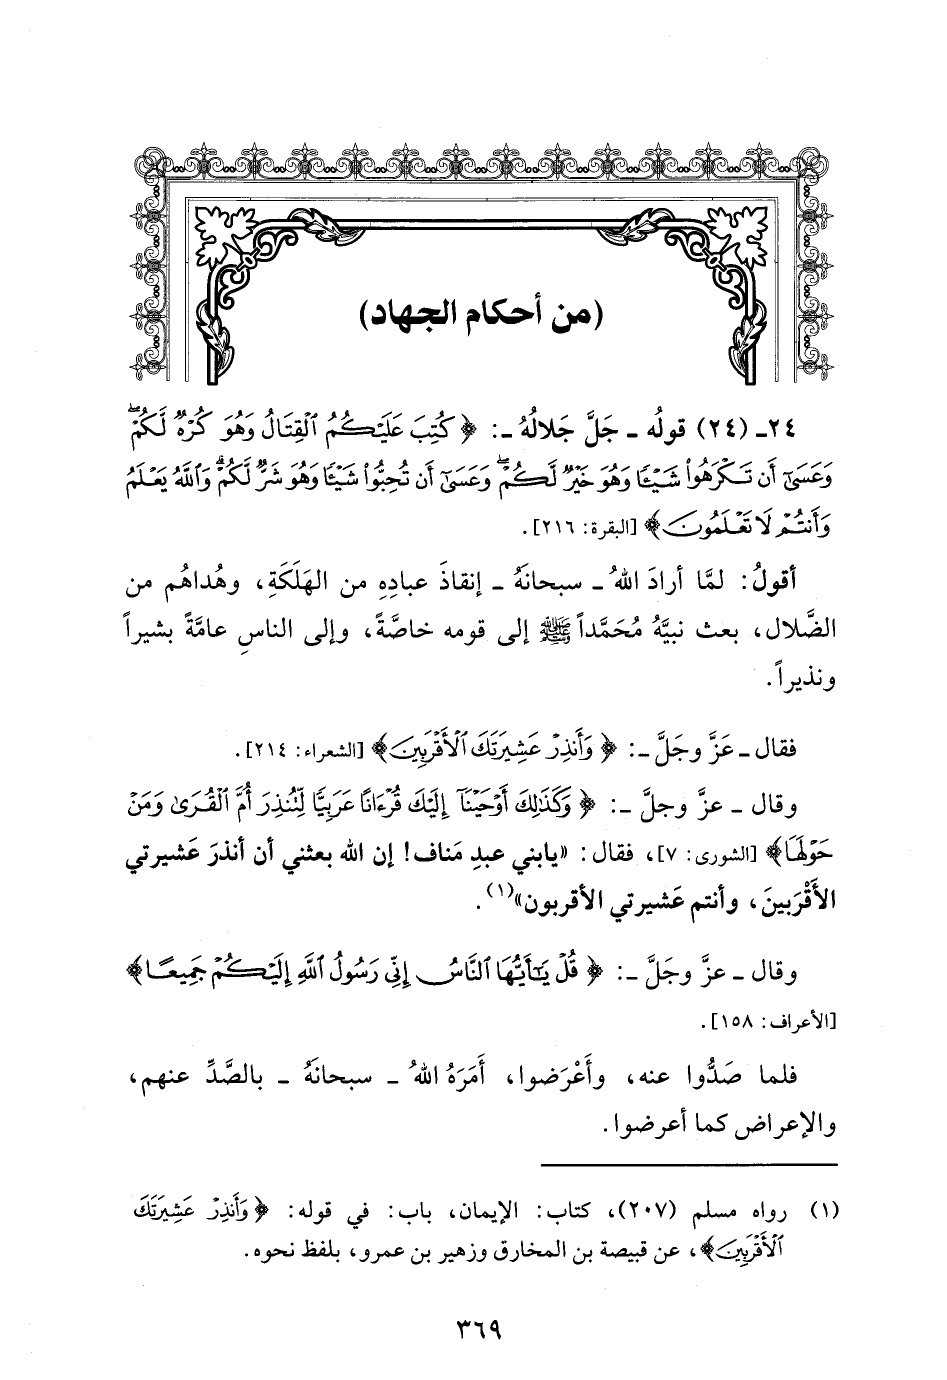 (من أحكام الجهاد)
٢٤ـ (٢٤) قولُه ـ جَلَّ جَلالُهُ ـ: ﴿كُتِبَ عَلَيْكُمُ ٱلْقِتَالُ وَهُوَ كُرْهٌ لَّكُمْ ۖ
وَعَسَىٰٓ أَن تَكْرَهُوا۟ شَيْـًٔا وَهُوَ خَيْرٌ لَّكُمْ ۖ وَعَسَىٰٓ أَن تُحِبُّوا۟ شَيْـًٔا وَهُوَ شَرٌّ لَّكُمْ ۗ وَٱللَّهُ يَعْلَمُ
وَأَنتُمْ لَا تَعْلَمُونَ﴾ [البقرة: ٢١٦].
أقولُ: لمَّا أرادَ اللهُ ـ سبحانَهُ ـ إنقاذَ عبادِهِ من الهَلَكَةِ، وهُداهُم من
الضَّلال، بعث نبيَّهُ مُحَمَّداً ﷺ إلى قومه خاصَّةً، وإلى الناسِ عامَّةً بشيراً
ونذيراً.
فقال ـ عَزَّ وجَلَّ ـ: ﴿وَأَنذِرْ عَشِيرَتَكَ ٱلْأَقْرَبِينَ﴾ [الشعراء: ٢١٤].
وقال ـ عزَّ وجلَّ ـ: ﴿وَكَذَٰلِكَ أَوْحَيْنَآ إِلَيْكَ قُرْءَانًا عَرَبِيًّا لِّتُنذِرَ أُمَّ ٱلْقُرَىٰ وَمَنْ
حَوْلَهَا﴾ [الشورى: ٧]، فقال: «يابني عبدِ مَناف! إن الله بعثني أن أنذرَ عَشيرتي
الأَقْرَبينَ، وأنتم عَشيرتي الأقربون»(١).
وقال ـ عزَّ وجَلَّ ـ: ﴿قُلْ يَٰٓأَيُّهَا ٱلنَّاسُ إِنِّى رَسُولُ ٱللَّهِ إِلَيْكُمْ جَمِيعًا﴾
[الأعراف: ١٥٨].
فلما صَدُّوا عنه، وأَعْرَضوا، أَمَرَهُ اللهُ ـ سبحانَهُ ـ بالصَّدِّ عنهم،
والإعراض كما أعرضوا.
(١) رواه مسلم (٢٠٧)، كتاب: الإيمان، باب: في قوله: ﴿وَأَنذِرْ عَشِيرَتَكَ
ٱلْأَقْرَبِينَ﴾، عن قبيصة بن المخارق وزهير بن عمرو، بلفظ نحوه.
٣٦٩